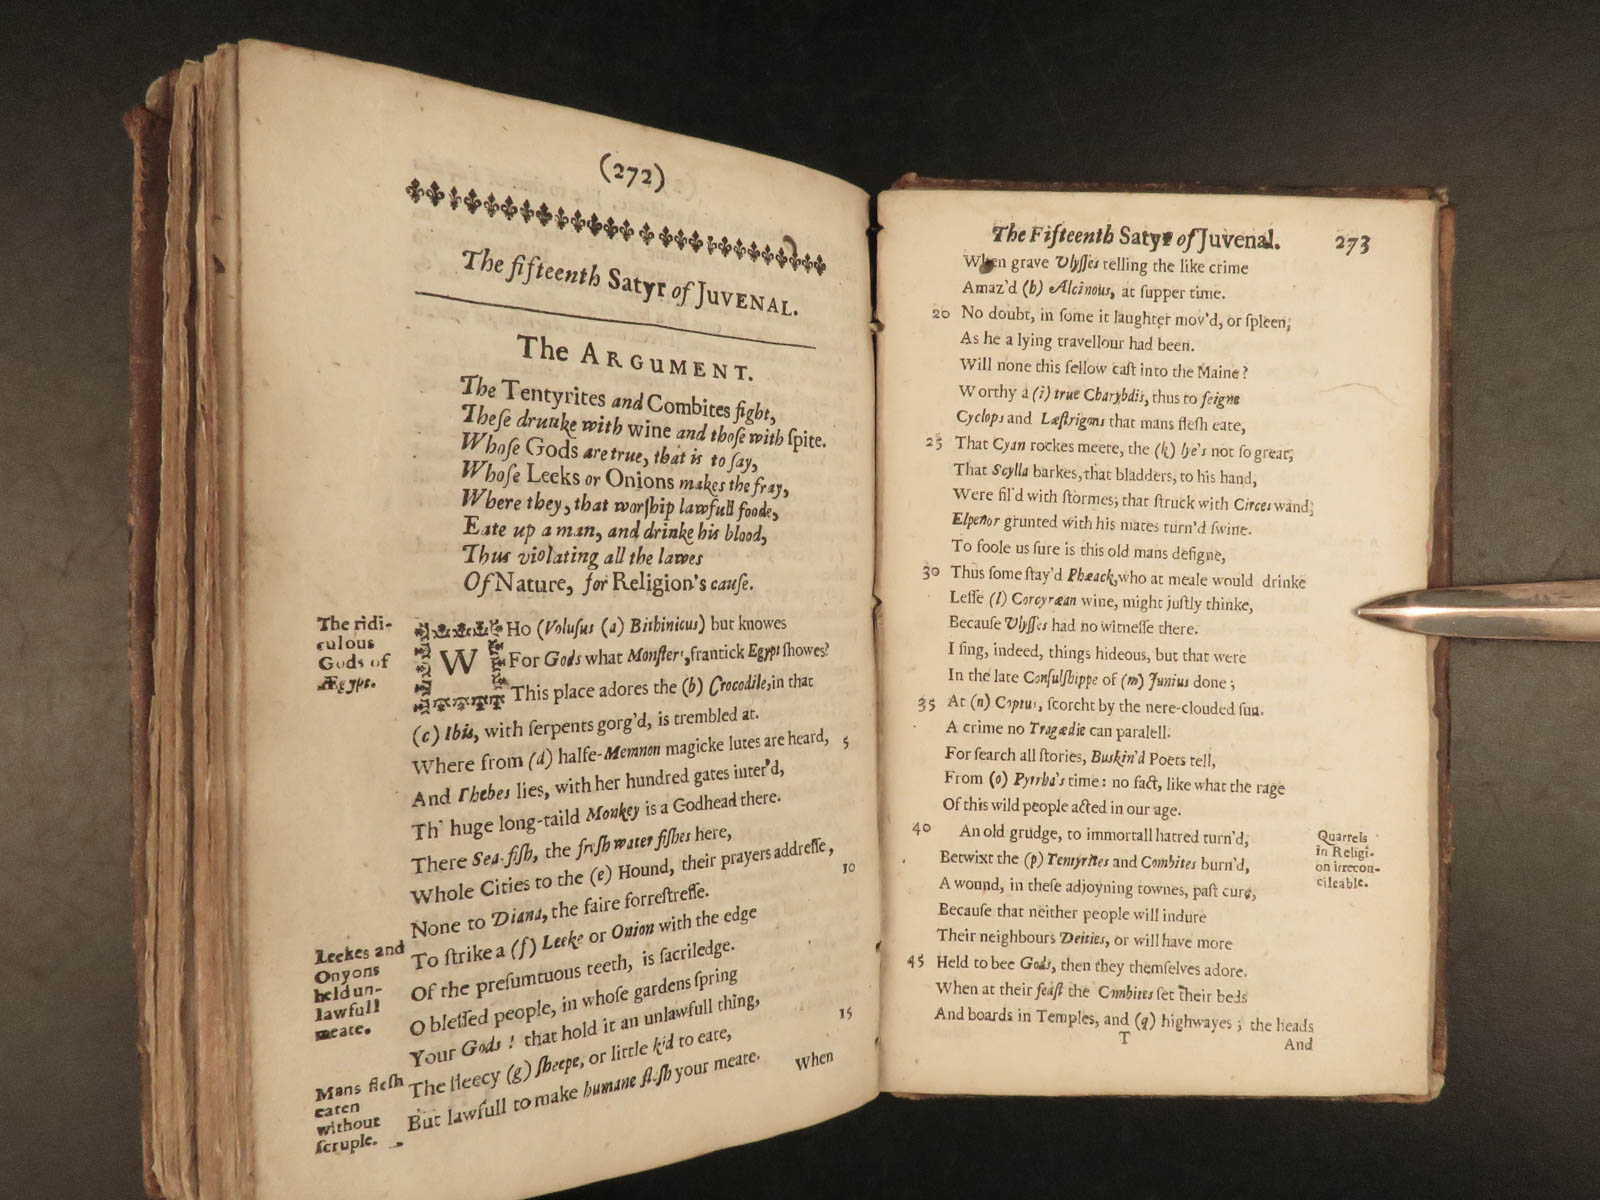 (272)
The fifteenth Satyr of JUVENAL.
The ARGUMENT.
The Tentyrites and Combites fight,
Theſe druuke with wine and thoſe with ſpite.
Whoſe Gods are true, that is to ſay,
Whoſe Leeks or Onions makes the fray,
Where they, that worſhip lawfull foode,
Eate up a man, and drinke his blood,
Thus violating all the lawes
Of Nature, for Religion's cauſe.
The ridi-
culous
Gods of
Ægypt.
WHo (Voluſus (a) Bithinicus) but knowes
For Gods what Monſters, frantick Egypt ſhowes?
This place adores the (b) Crocodile, in that
(c) Ibis, with ſerpents gorg'd, is trembled at.
Where from (d) halfe-Memnon magicke lutes are heard, 5
And Thebes lies, with her hundred gates inter'd,
Th' huge long-taild Monkey is a Godhead there.
There Sea-fiſh, the freſh water fiſhes here,
Whole Cities to the (e) Hound, their prayers addreſſe,
None to Diana, the faire forreſtreſſe. 10
Leekes and
Onyons
held un-
lawfull
meate.
To ſtrike a (f) Leeke or Onion with the edge
Of the preſumtuous teeth, is ſacriledge.
O bleſſed people, in whoſe gardens ſpring
Your Gods! that hold it an unlawfull thing,
The fleecy (g) ſheepe, or little kid to eate, 15
Mans fleſh
eaten
without
ſcruple.
But lawfull to make humane fleſh your meate.
When
The Fifteenth Satyr of Juvenal. 273
When grave Ulyſſes telling the like crime
Amaz'd (h) Alcinous, at ſupper time.
20 No doubt, in ſome it laughter mov'd, or ſpleen;
As he a lying travellour had been.
Will none this fellow caſt into the Maine?
Worthy a (i) true Charybdis, thus to feigne
Cyclops and Læſtrigons that mans fleſh eate,
25 That Cyan rockes meete, the (k) lye's not ſo great;
That Scylla barkes, that bladders, to his hand,
Were fil'd with ſtormes; that ſtruck with Circes wand,
Elpenor grunted with his mates turn'd ſwine.
To foole us ſure is this old mans deſigne,
30 Thus ſome ſtay'd Phæack, who at meale would drinke
Leſſe (l) Corcyræan wine, might juſtly thinke,
Becauſe Ulyſſes had no witneſſe there.
I ſing, indeed, things hideous, but that were
In the late Conſulſhippe of (m) Junius done;
35 At (n) Coptus, ſcorcht by the nere-clouded ſun.
A crime no Tragædie can paralell.
For ſearch all ſtories, Buskin'd Poets tell,
From (o) Pyrrha's time: no fact, like what the rage
Of this wild people acted in our age.
40 An old grudge, to immortall hatred turn'd,
Betwixt the (p) Tentyrites and Combites burn'd,
A wound, in theſe adjoyning townes, paſt cure,
Becauſe that neither people will indure
Their neighbours Deities, or will have more
45 Held to bee Gods, then they themſelves adore.
When at their feaſt the Combites ſet their beds
And boards in Temples, and (q) highwayes; the heads
Quarrels
in Religi-
on irrecon-
cileable.
T
And